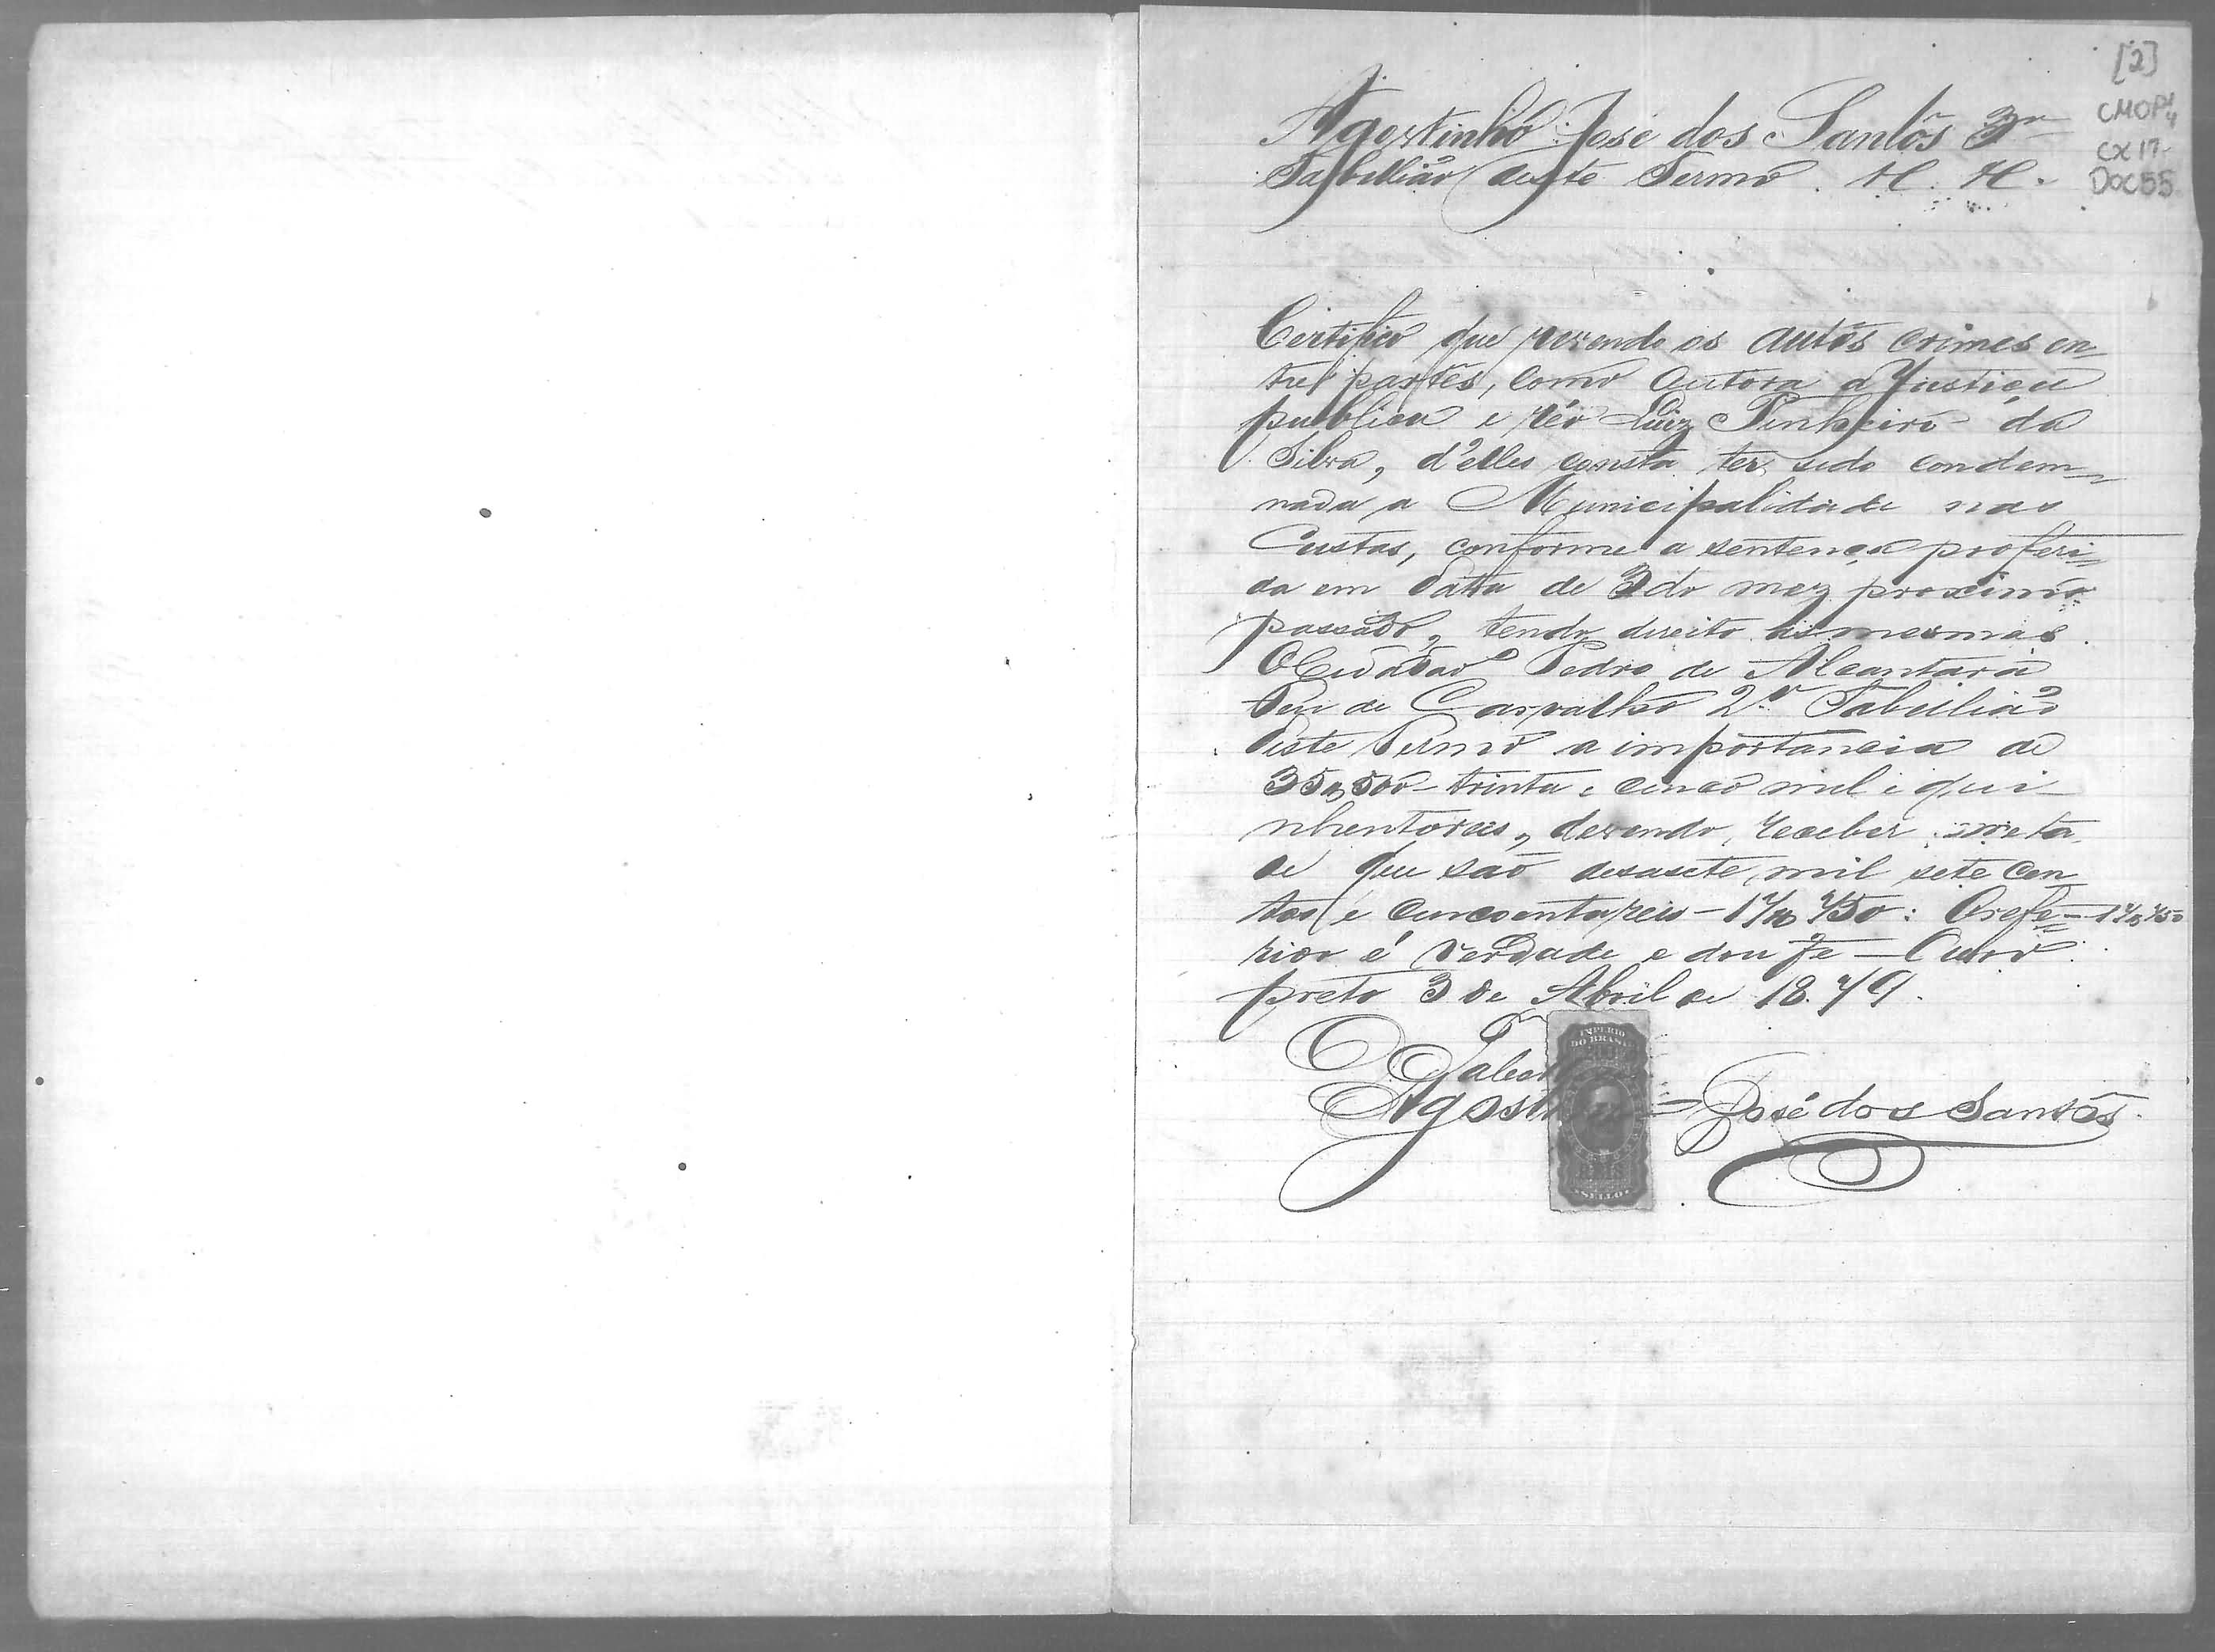 [2]
CMOP
CX 17
DOC 55
Agostinho José dos Santos 3º
Tabellião deste Termo. H. H.
Certifico que revendo os autos crimes en
tre partes, como autora a Justiça
publica e réo Luiz Pinheiro da
Silva, d'elles consta ter sido condem
nada a Municipalidade nas
Custas, conforme a sentença proferi
da em data de 3 do mez proximo
passado, tendo direito as mesmas
O Cidadão Pedro de Alcantara
Feu de Carvalho 2º Tabellião
deste Termo a importancia de
35$500 - trinta e cinco mil e qui
nhentos reis, devendo receber meta
de que são desasete mil sete cen
tos e cincoenta reis - 17$750: O refe - 17$750
rido é verdade e dou fé - Ouro
preto 3 de Abril de 1879.
O Tabel
Agosti José dos Santos
IMPERIO
DO BRASIL
SELLO